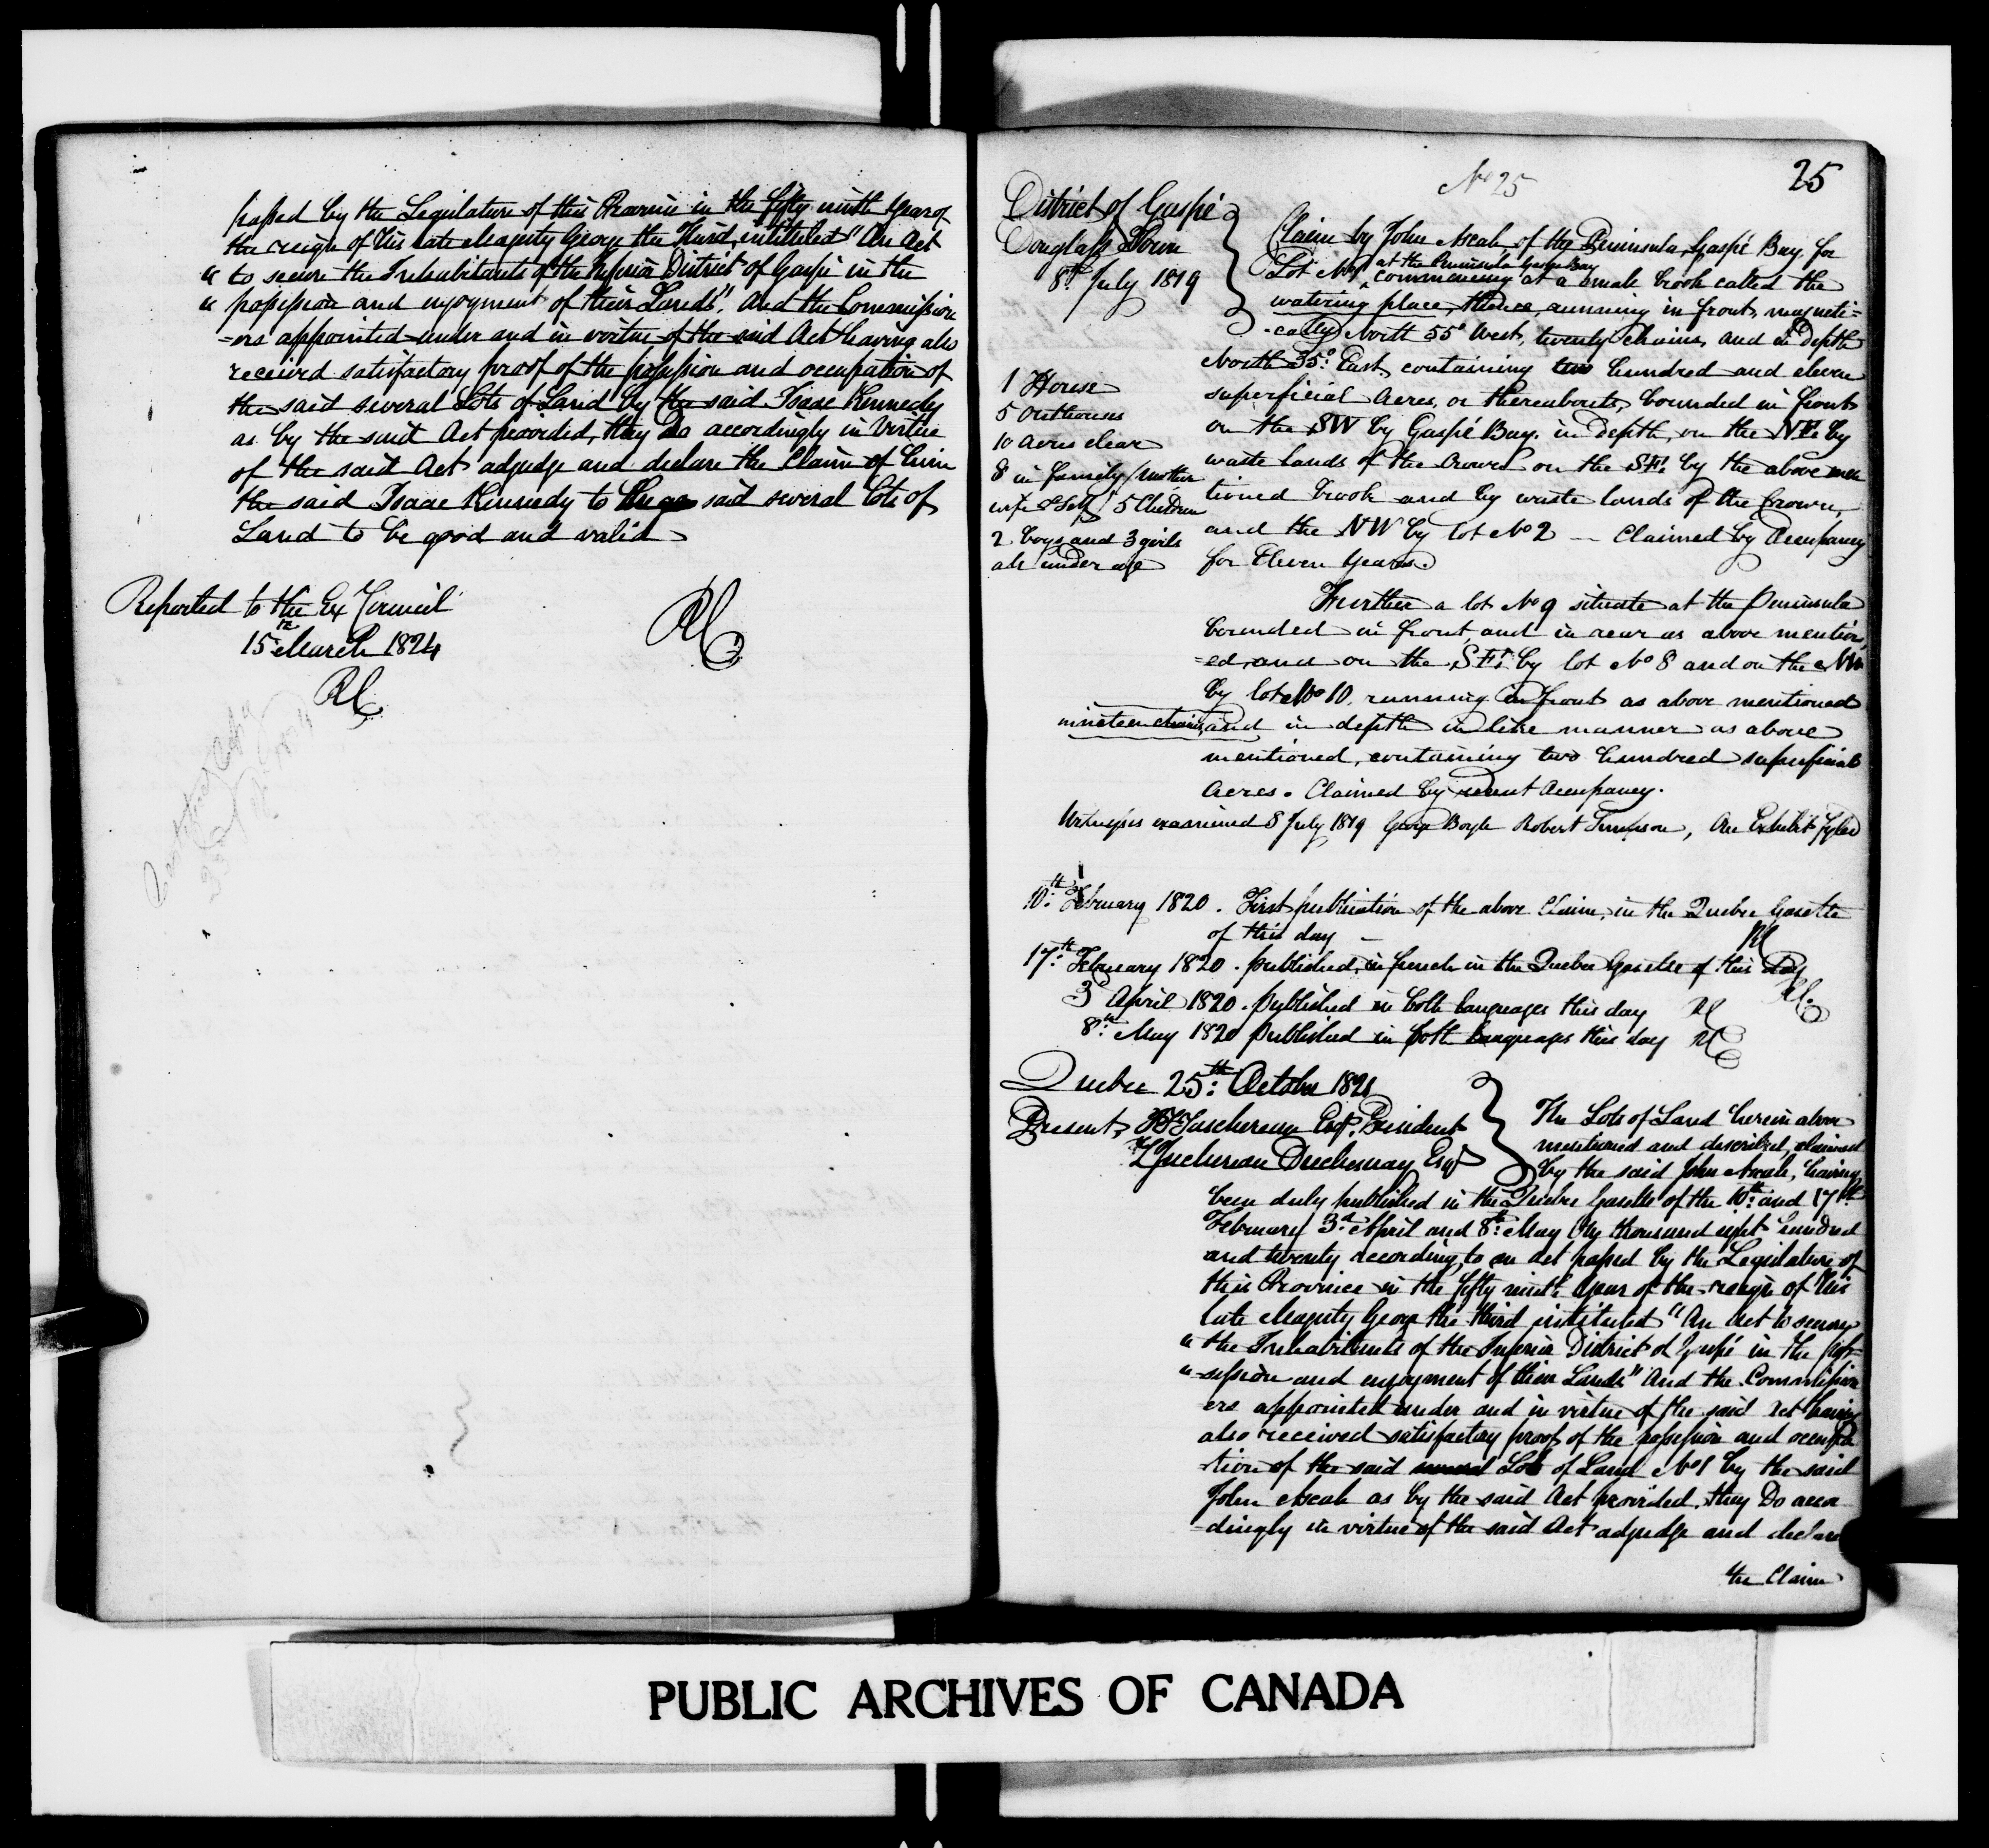 passed by the Legislature of this Province in the fifty ninth year of
the reign of His late Majesty George the Third, intituled "An Act
" to secure the Inhabitants of the Inferior District of Gaspé in the
" possession and enjoyment of their Lands". And the Commission
=ers appointed under and in virtue of the said Act having also
received satisfactory proof of the possession and occupation of
the said several Lots of Land by the said Isaac Kennedy
as by the said Act provided, they Do accordingly in Virtue
of the said Act adjudge and declare the Claim of him
the said Isaac Kennedy to these said several Lots of
Land to be good and valid
Reported to the Ex Council
15th March 1824
RC
RC
No 25
25
District of Gaspé
Douglass Town
8th July 1819
Claim by John Ascah of the Peninsula, Gaspé Bay for
at the Peninsula Gaspe Bay
Lot No 1 commencing at a small brook called the
watering place, thence, running in front, magneti=
=cally North 55° West, twenty chains, and in Depth
North 35° East, containing two hundred and eleven
superficial Acres, or thereabouts, bounded in front
on the SW by Gaspé Bay. in depth, on the NE by
waste lands of the Crown on the SE by the above men
tioned brook and by waste lands of the Crown,
and the NW by lot No 2 — Claimed by Occupancy
for Eleven Years.
1 House
5 Outhouses
10 acres clear
8 in family / mother
wife & Self / 5 Children
2 boys and 3 girls
all under age
Further a lot No 9 situate at the Peninsula
bounded in front, and in rear as above mention
=ed, and on the SE by lot No 8 and on the NW
by lot No 10. running in front as above mentioned
nineteen chains, and in depth in like manner as above
mentioned, containing two hundred superficial
Acres. Claimed by recent Occupancy.
Witnesses examined 8 July 1819 George Boyle Robert Simpson, An Exhibit fyled
10th February 1820. First publication of the above Claim, in the Quebec Gazette
of this day — RC
17th February 1820. published, in french in the Quebec Gazette of this day
RC.
3 April 1820. published in both languages this day RC
8th May 1820 published in both languages this day RC
Quebec 25th October 1821
Present, Taschereau Esqr. President
Juchereau Duchesnay Esqr
The Lots of Land herein above
mentioned and described, claimed
by the said John Ascah, having
been duly published in the Quebec Gazette of the 10th and 17th
February 3d April and 8th May One thousand eight hundred
and twenty according to an Act passed by the Legislature of
this Province in the fifty ninth Year of the reign of His
late Majesty George the third intituled "An Act to secure
" the Inhabitants of the Inferior District of Gaspé in the pos=
"=session and enjoyment of their Lands" And the Commission
ers appointed under and in virtue of the said Act having
also received satisfactory proof of the possession and occupa
tion of the said Lot of Land No 1 by the said
John Ascah as by the said Act provided, they Do accor
=dingly in virtue of the said Act adjudge and declare
the Claim
PUBLIC ARCHIVES OF CANADA